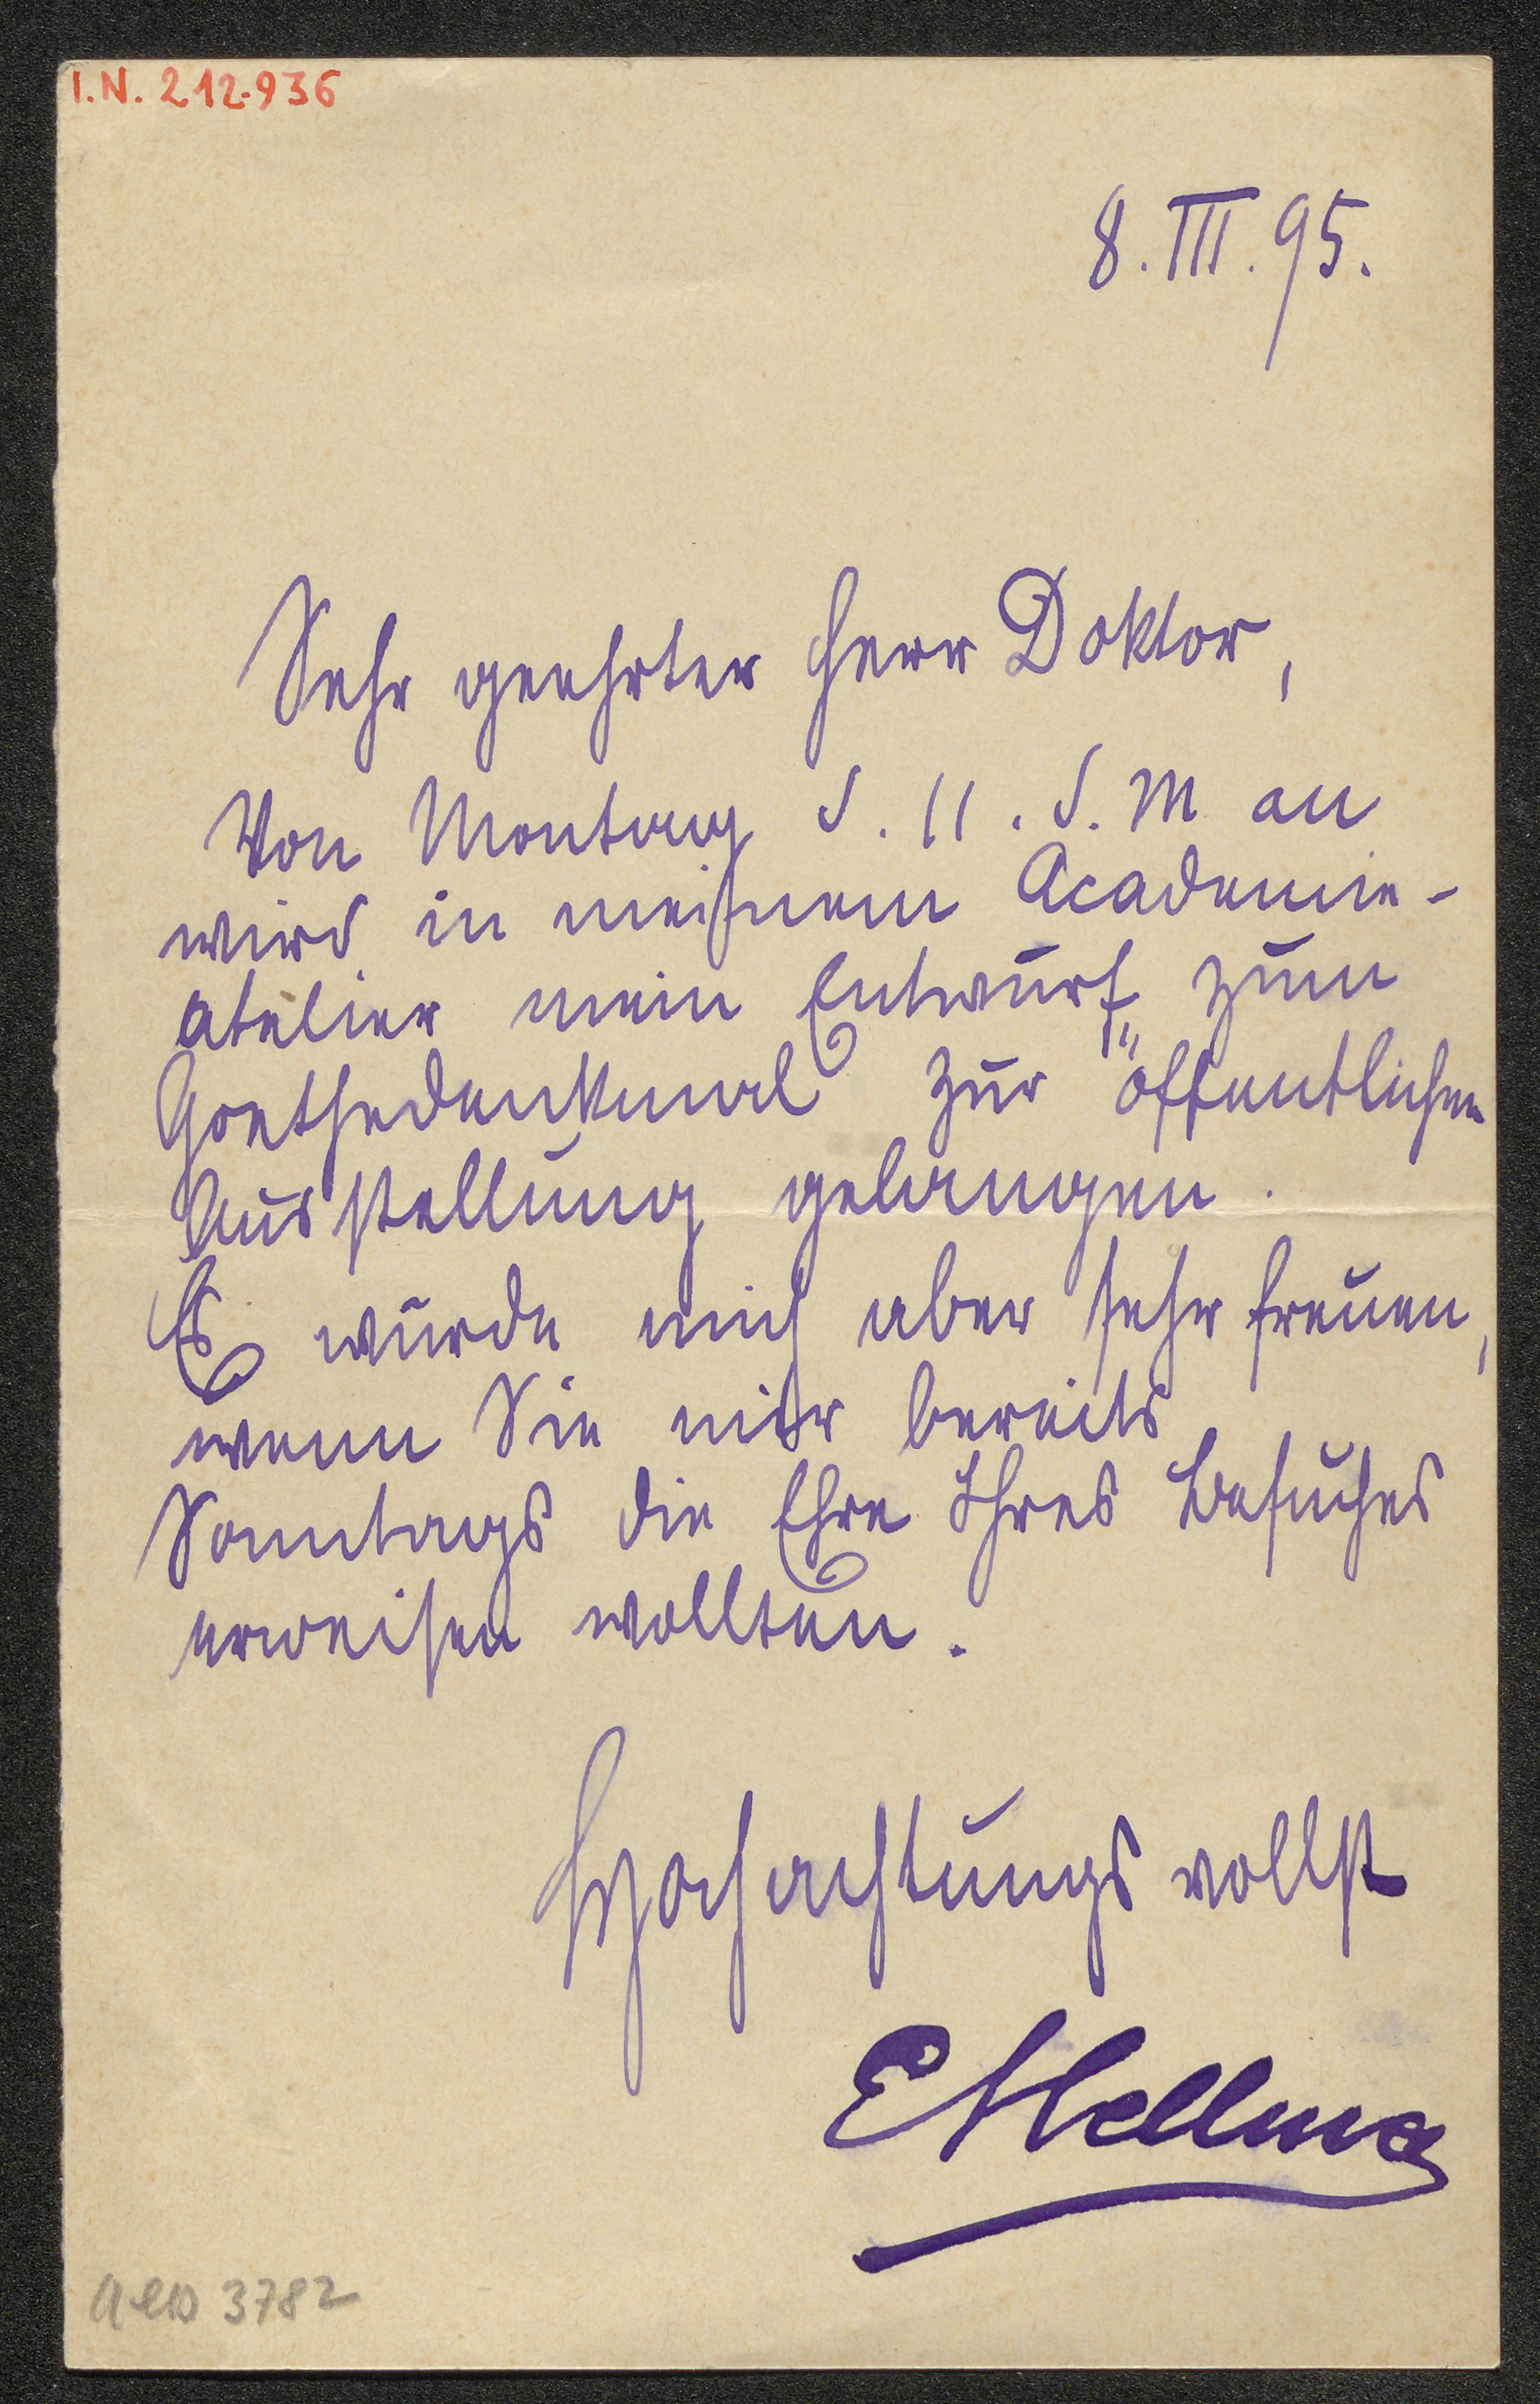 I.N. 212.936
8. III. 95.
Sehr geehrter Herr Doktor,
Von Montag d. 11. d. M an
wird in meinem Academie-
atelier mein Entwurf zum
Goethedenkmal zur öffentlichen
Ausstellung gelangen.
Es würde mich aber sehr freuen,
wenn Sie mir bereits
Sonntags die Ehre Ihres Besuches
erweisen wollten.
Hochachtungsvollst
EHellmer
3782